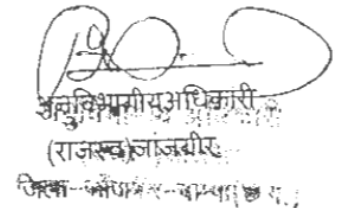 अनुविभागीय अधिकारी
(राजस्व) जांजगीर
जिला-जांजगीर-चाम्पा (छ.ग.)